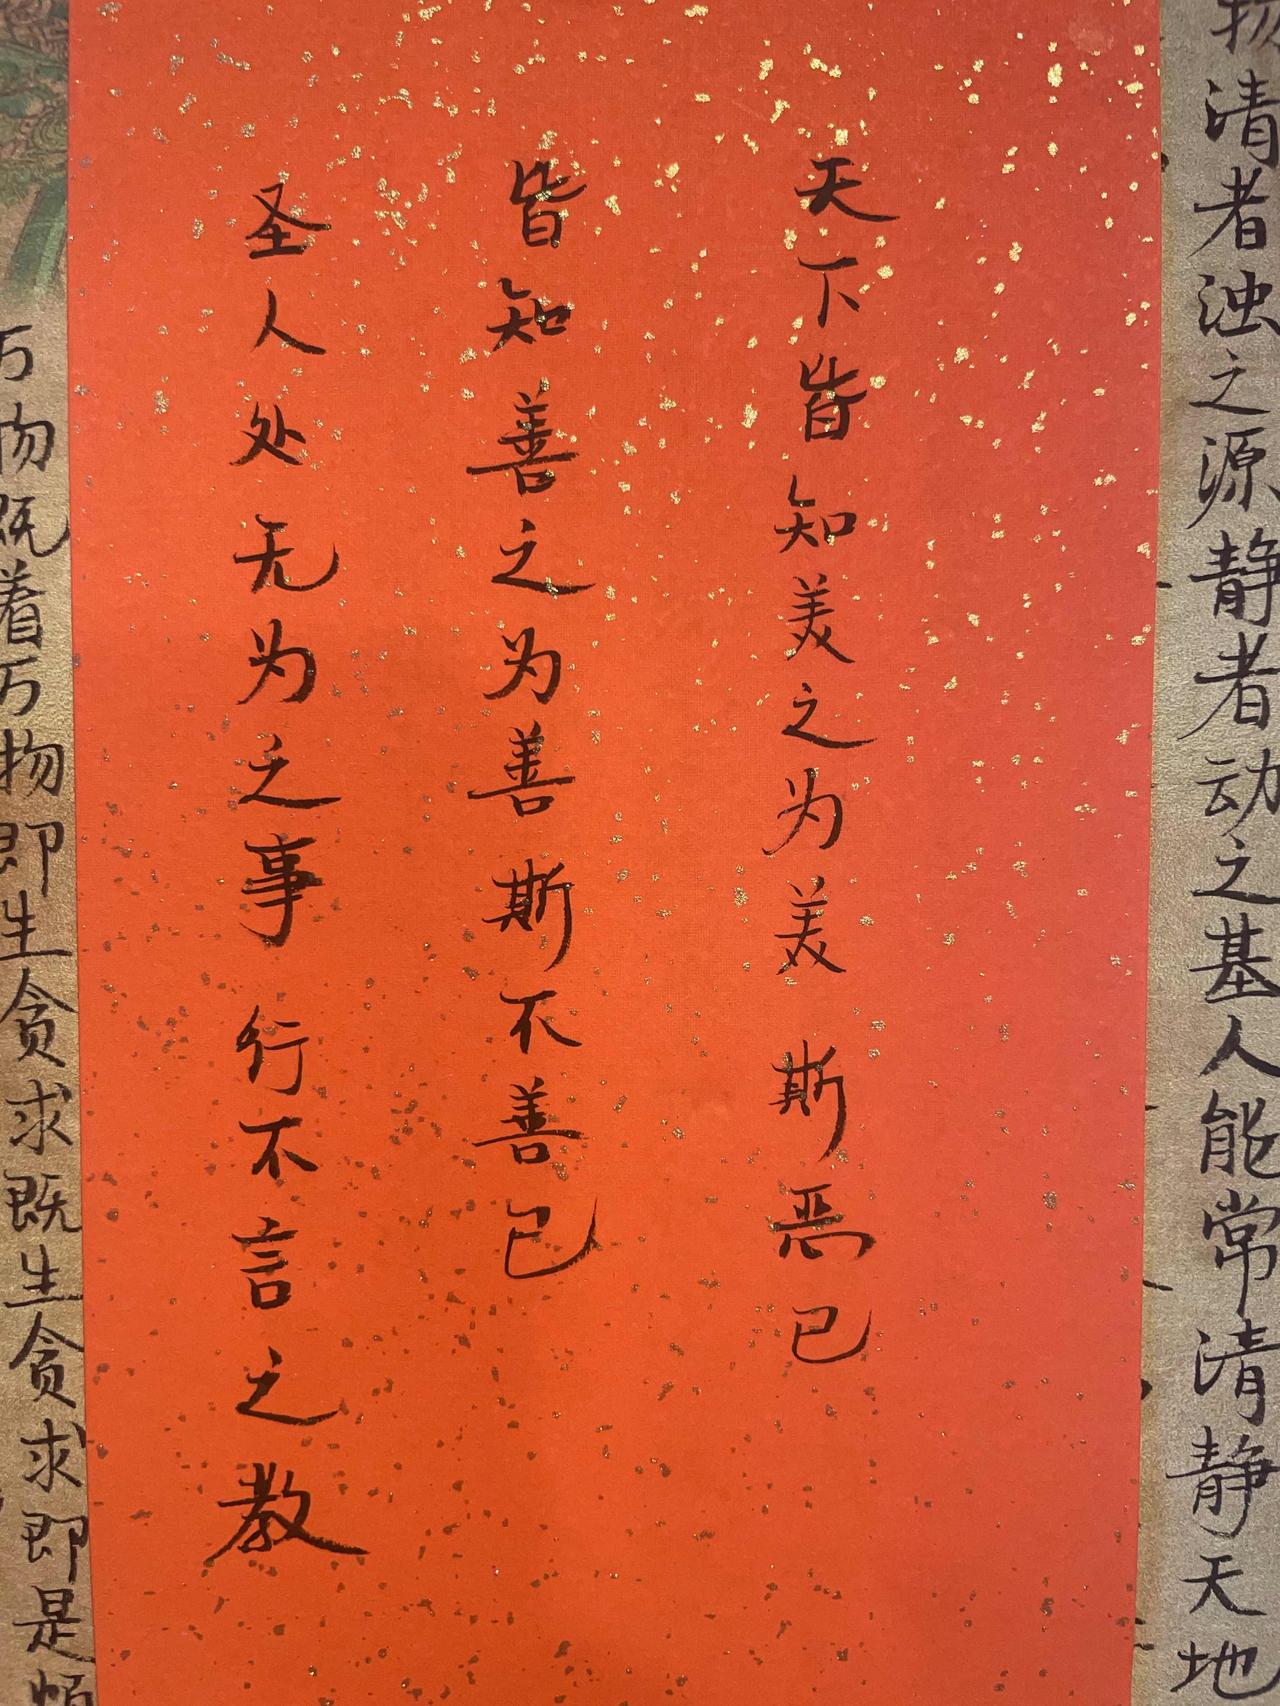 清者浊之源静者动之基人能常清静天地
天下皆知美之为美 斯恶已
皆知善之为善 斯不善已
圣人处无为之事 行不言之教
万物既着万物即生贪求既生贪求即是